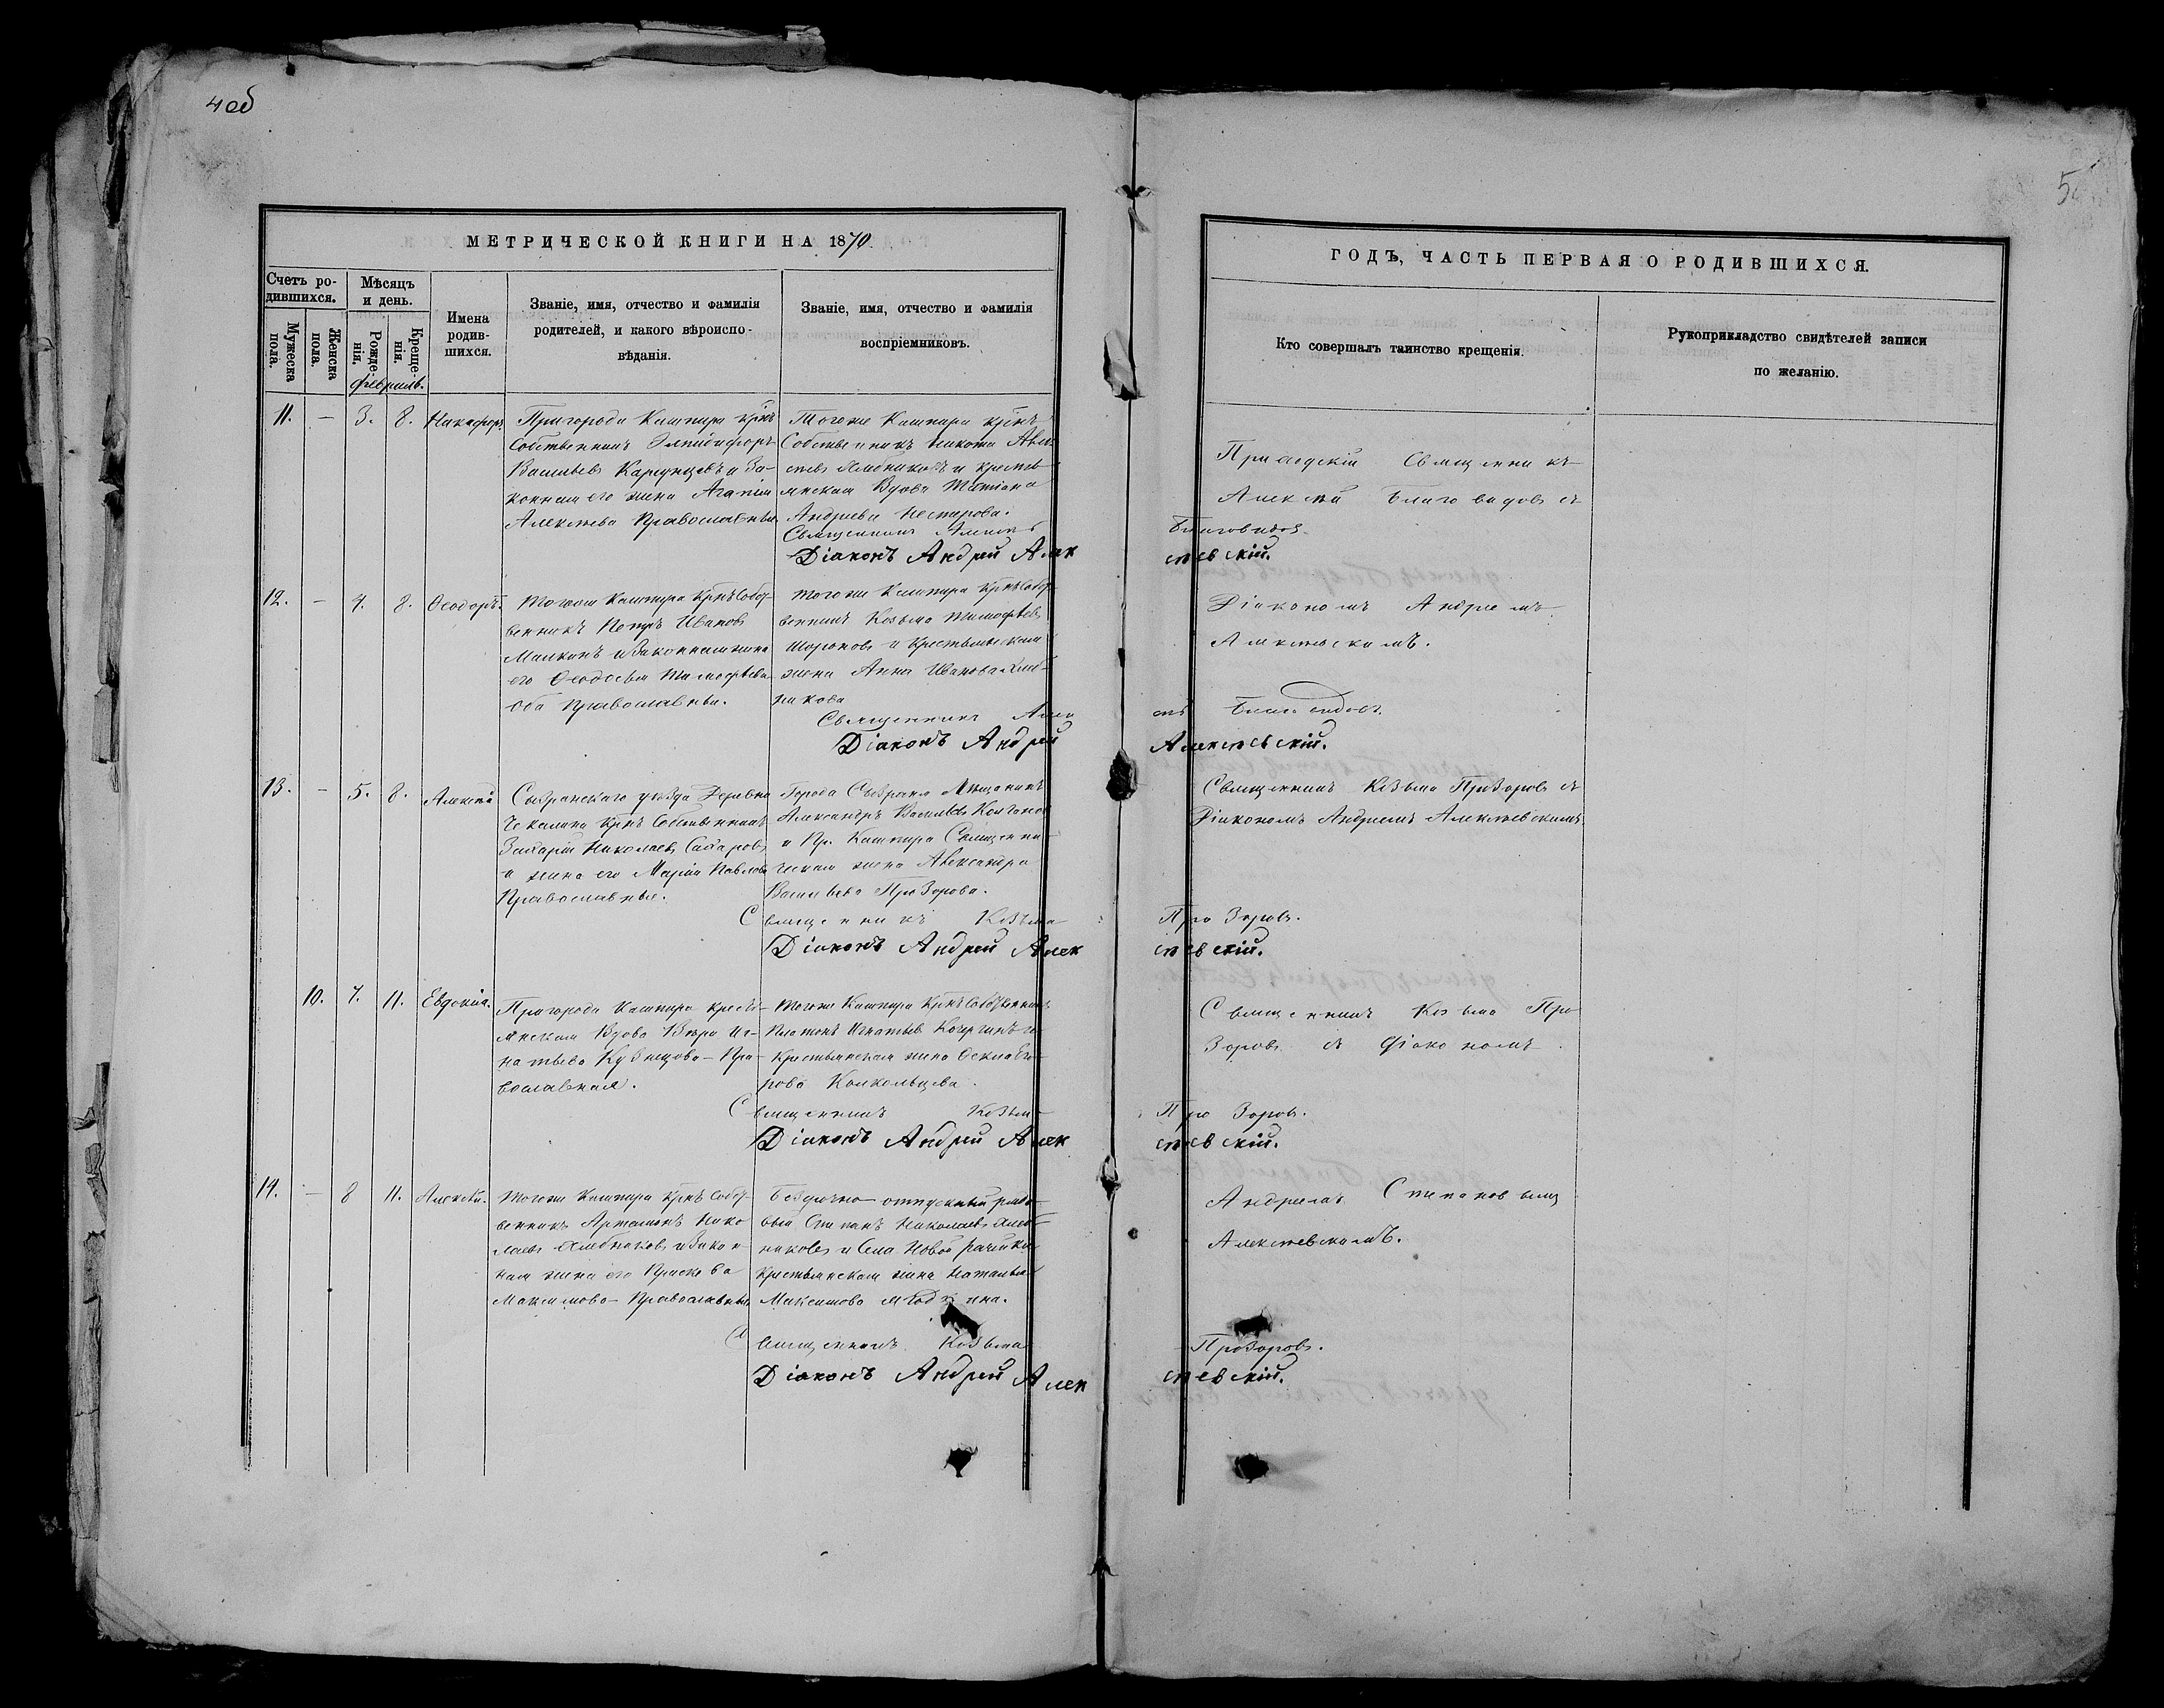 4 об
5
МЕТРИЧЕСКОЙ КНИГИ НА 1870
Счетъ ро-
дившихся.
Мѣсяцъ
и день.
Мужеска
пола.
Женска
пола.
Рожде-
нія.
Креще-
нія.
Февраль.
Имена
родив-
шихся.
Званіе, имя, отчество и фамилія
родителей, и какого вѣроиспо-
вѣданія.
Званіе, имя, отчество и фамилія
воспріемниковъ.
11. — 3. 8. Никифоръ.
Пригорода Кашпира крнъ
Собственникъ Элпидифоръ
Васильевъ и За-
конная его жена Агапія
Алексѣева Православные
Тогоже Кашпира крнъ
Собственникъ Никита Алек
сѣевъ Хлебниковъ и кресть
янская Вдова Татіана
Андреева Нестерова.
Священникъ Алексѣй
Діаконъ Андрей Алек
12. — 4. 8. Ѳеодоръ.
Тогоже Кашпира Крнъ Собст
венникъ Петръ Ивановъ
Малкинъ и Законная жена
его Ѳеодосья Тимофѣева
Оба Православны.
Тогоже Кашпира Крнъ Собст
венникъ Козьма Тимофѣевъ
и Крестьянская
жена Анна Иванова Хлеб-
никова
Священникъ Алек
Діаконъ Андрей
13. — 5. 8. Алексѣй
Сызранскаго уѣзда Деревни
Чекалина Крнъ Собственникъ
Захарій Николаевъ Сахаровъ
и жена его Марія Павлова
Православные.
Города Сызрани Мѣщанинъ
Александръ Васильевъ
и Пр. Кашпира Священни-
ческая жена Александра
Васильева Прозорова.
Священникъ Козьма
Діаконъ Андрей Алек
10. 7. 11. Евдокія.
Пригорода Кашпира кресть-
янская Вдова Вѣра Иг-
натьева Кузнецова — Пра-
вославная.
Тогоже Кашпира Крнъ Собственникъ
Платонъ Игнатьевъ Кочергинъ и
Крестьянская жена Ѳекла Его-
рова Колкольцева.
Священникъ Козьма
Діаконъ Андрей Алек
14. — 8 11. Алексѣй.
Тогоже Кашпира Крнъ Собст
венникъ Артамонъ Нико
лаевъ Хлебниковъ и Закон
ная жена его Прасковья
Максимова — Православные
Безсрочно — отпускный рядо-
вый Степанъ Николаевъ Хлеб-
никовъ и Села Новой Рачейки
Крестьянская жена Наталья
Максимова
Священникъ Козьма
Діаконъ Андрей Алек
ГОДЪ, ЧАСТЬ ПЕРВАЯ О РОДИВШИХСЯ.
Кто совершалъ таинство крещенія.
Рукоприкладство свидѣтелей записи
по желанію.
Приходскій Священникъ
Алексѣй Благовидовъ съ
Благовидовъ.
сѣевскій.
Діакономъ Андреемъ
Алексѣевскимъ.
сѣй Благовидовъ.
Алексѣевскій.
Священникъ Козьма Прозоровъ съ
Діакономъ Андреемъ Алексѣевскимъ
Прозоровъ.
сѣевскій.
Священникъ Козьма Про
зоровъ съ Діакономъ
Прозоровъ.
сѣевскій.
Андреемъ Степановымъ
Алексѣевскимъ.
Прозоровъ.
сѣевскій.